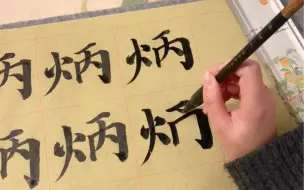 炳炳炳
炳炳炳